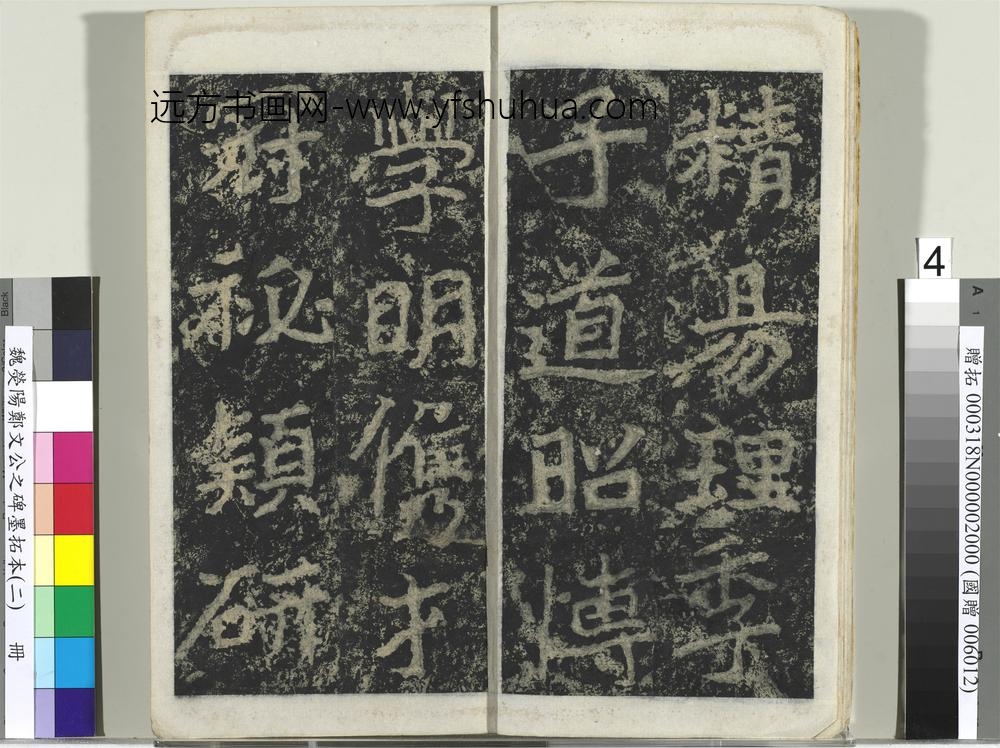 远方书画网-www.yfshuhua.com
精易理季
子道昭博
學明儁才
冠秘穎研
魏滎陽鄭文公之碑墨拓本(二) 冊
4
贈拓 000318N000002000 (國贈 006012)
Black
A
1